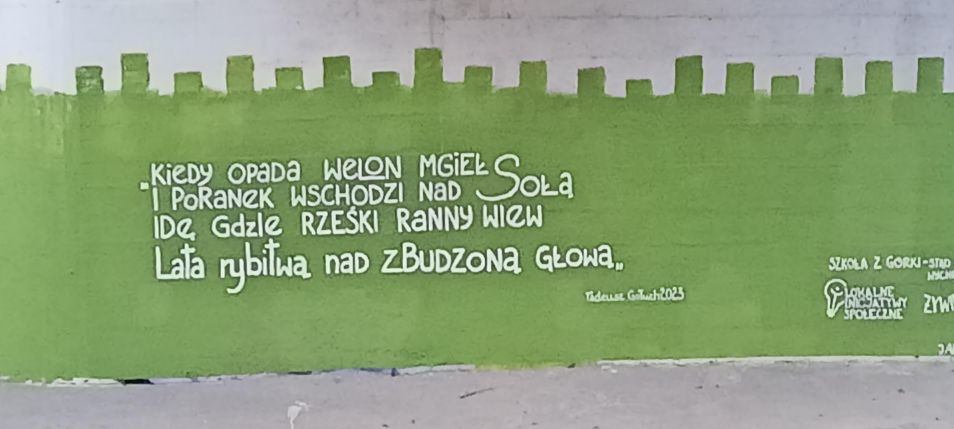 „Kiedy opada welon mgieł
i poranek wschodzi nad Sołą
idę gdzie rześki ranny wiew
lata rybitwą nad zbudzoną głową„
Tadeusz Gołuch 2023
SZKOŁA Z GÓRKI - STĄD
LOKALNE
INICJATYWY
SPOŁECZNE